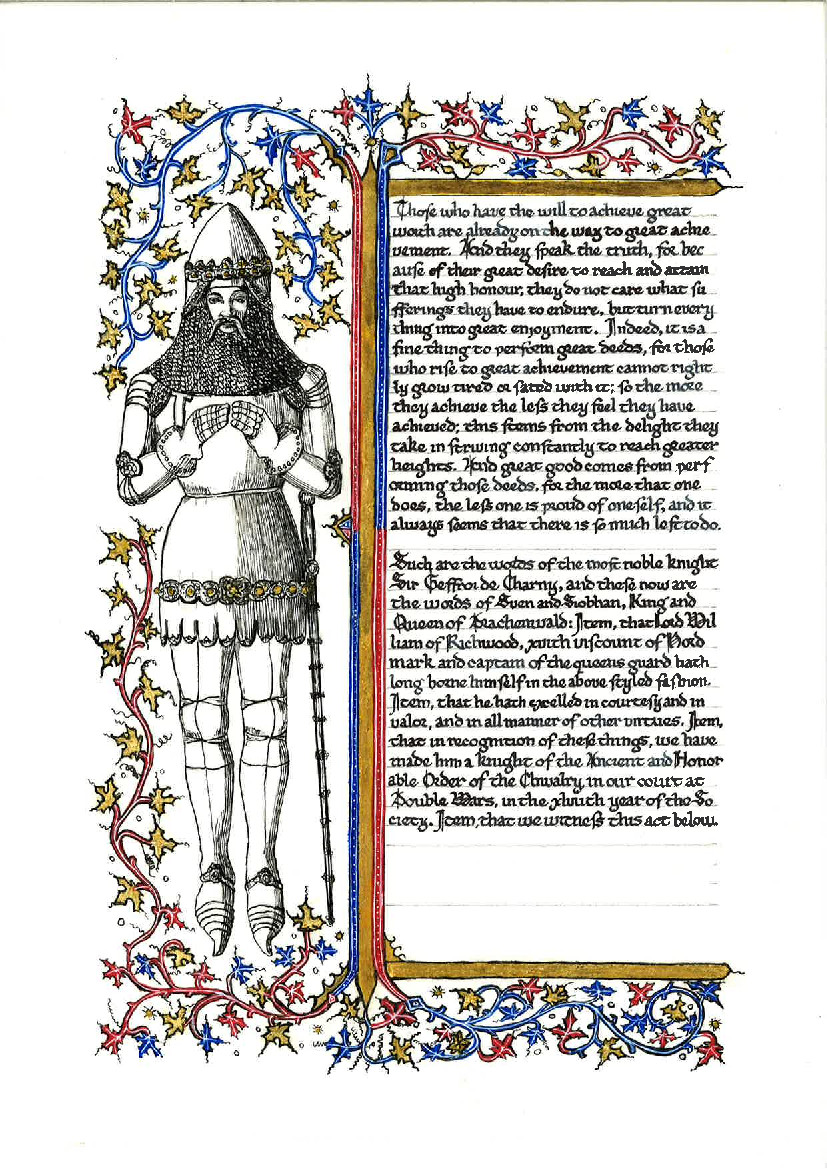 Those who have the will to achieve great
worth are already on the way to great achie
vement. And they speak the truth, for bec
ause of their great desire to reach and attain
that high honour, they do not care what su
fferings they have to endure, but turn every
thing into great enjoyment. Indeed, it is a
fine thing to perform great deeds, for those
who rise to great achievement cannot right
ly grow tired or sated with it; so the more
they achieve the less they feel they have
achieved; this stems from the delight they
take in striving constantly to reach greater
heights. And great good comes from perf
orming those deeds, for the more that one
does, the less one is proud of oneself, and it
always seems that there is so much left to do.
Such are the words of the most noble knight
Sir Geffroi de Charny, and these now are
the words of Sven and Siobhan, King and
Queen of Drachenwald: Item, that Lord Wil
liam of Richwood, xwith viscount of Nord
mark and captain of the queens guard hath
long borne himself in the above styled fashion.
Item, that he hath excelled in courtesy and in
valor, and in all manner of other virtues. Item,
that in recognition of these things, we have
made him a knight of the Ancient and Honor
able Order of the Chivalry, in our court at
Double Wars, in the year of the So
ciety. Item, that we witness this act below.